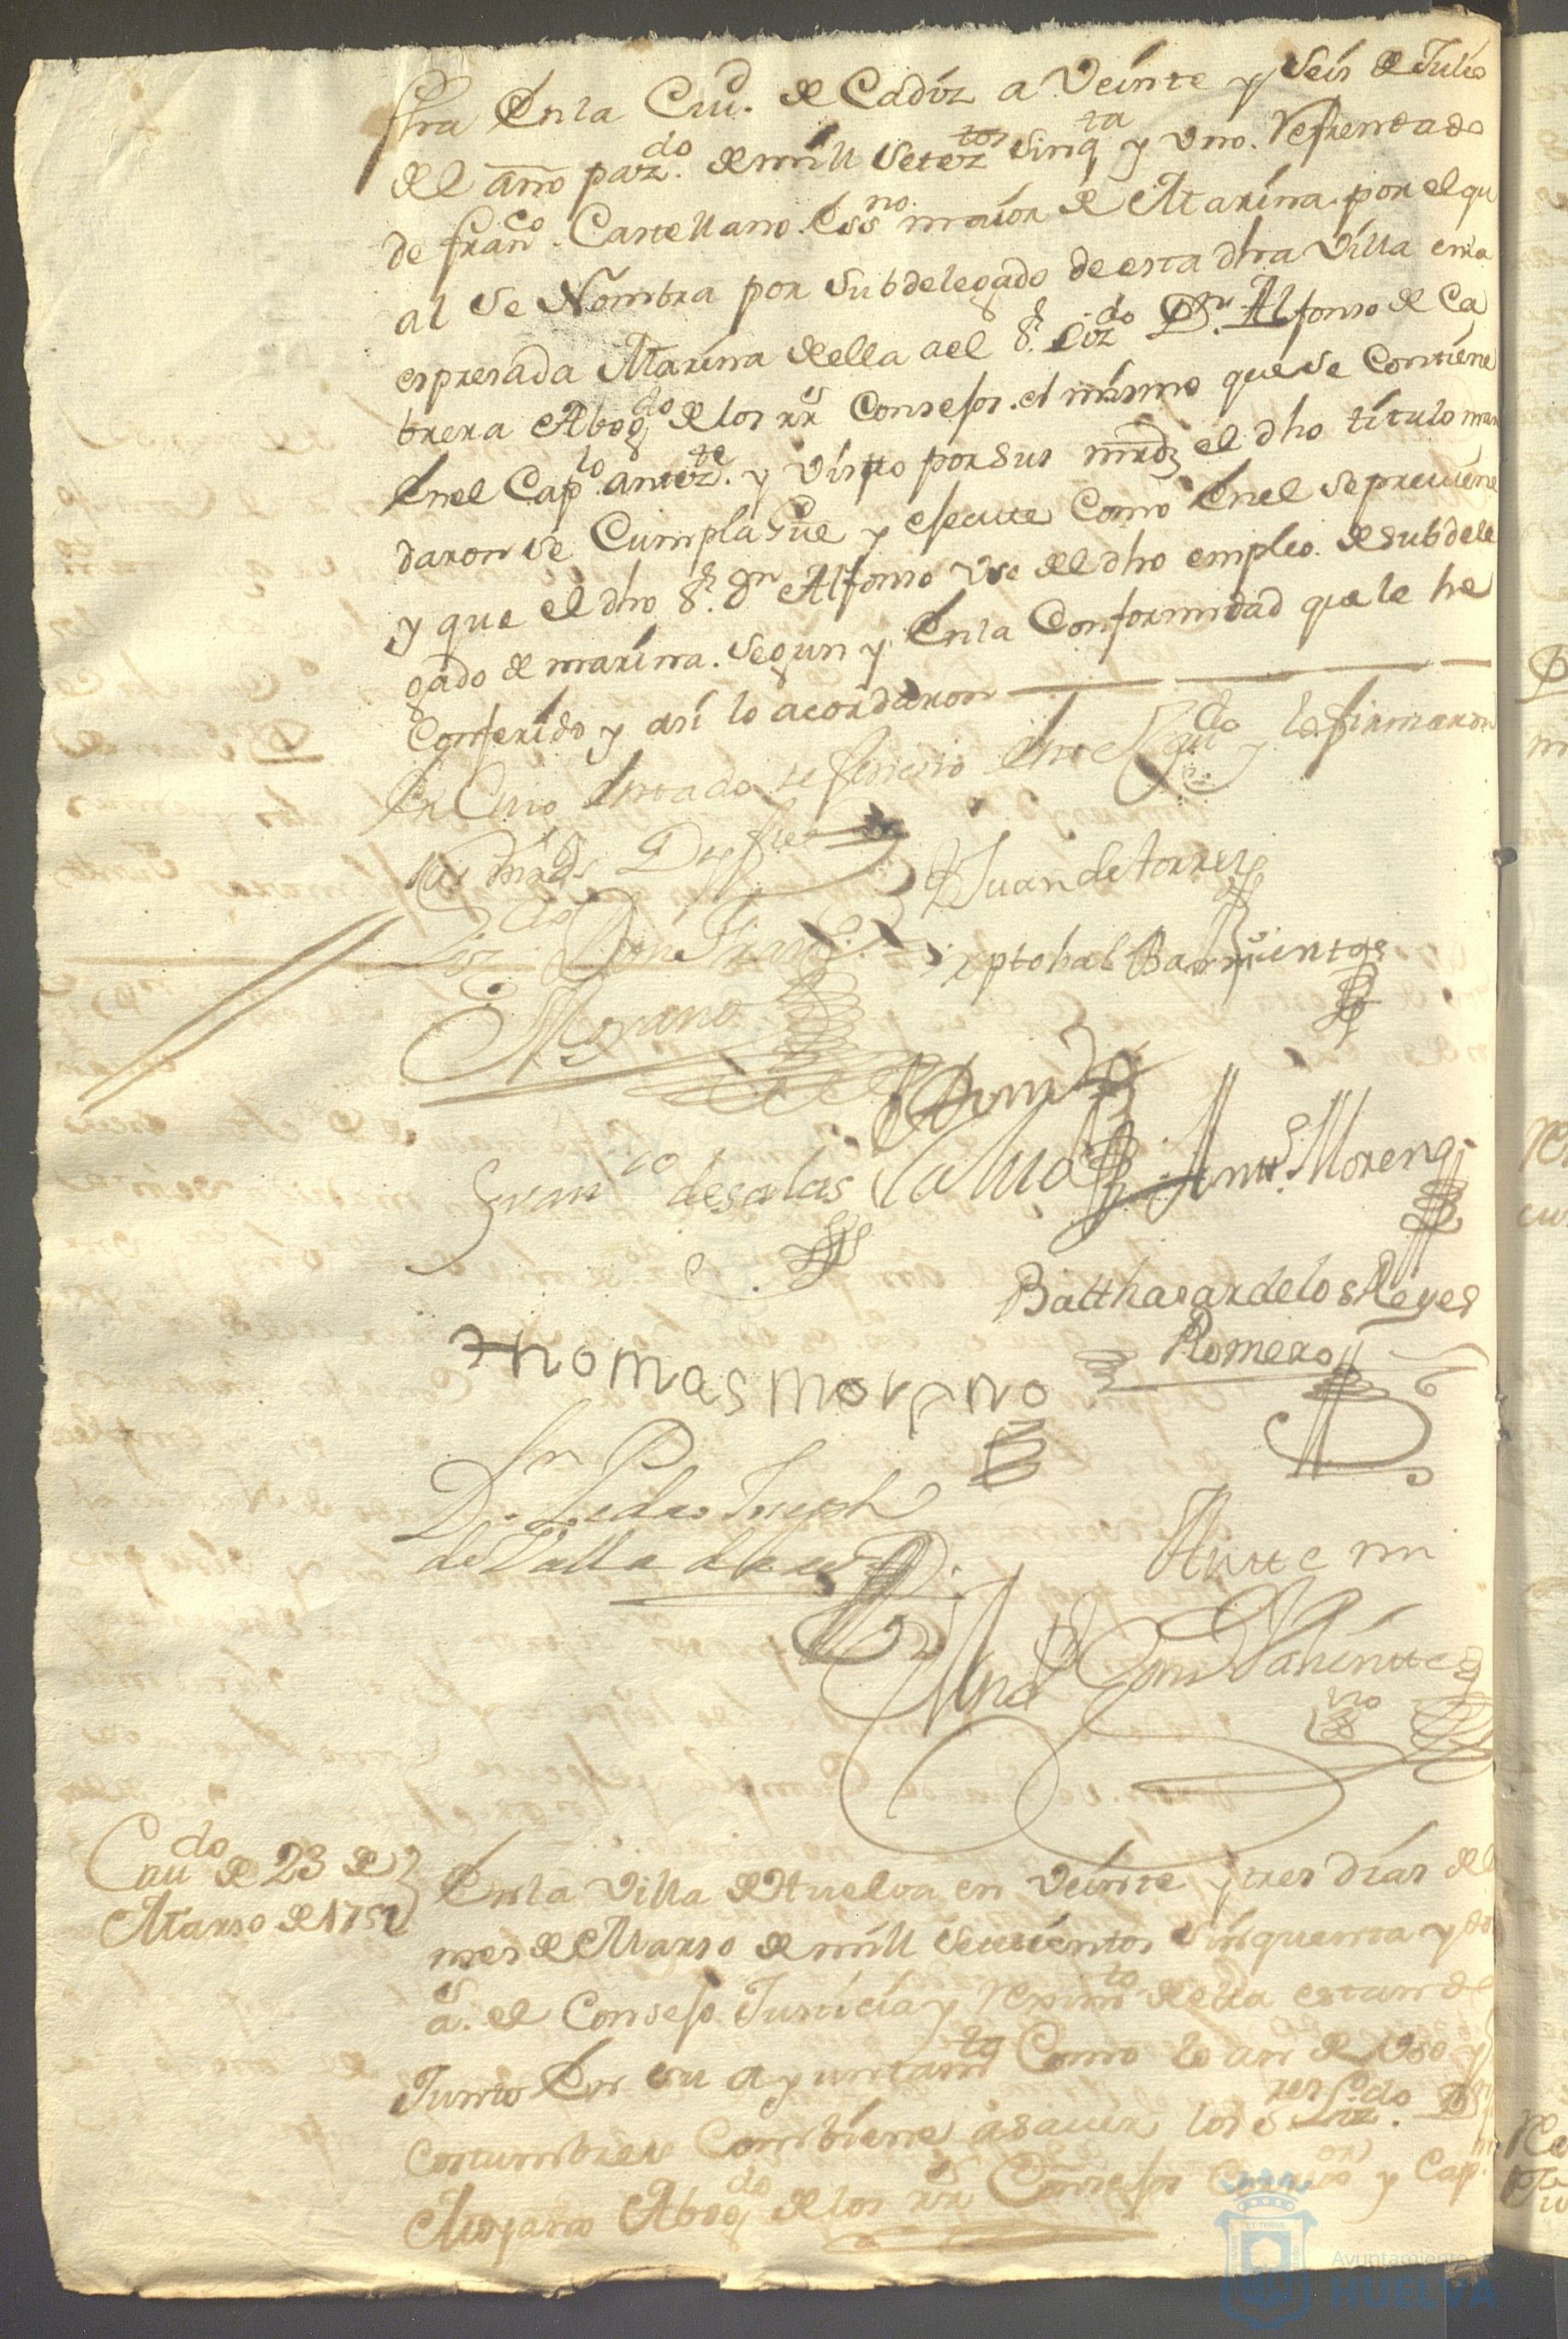 fha En la Ciud. de Cadiz a Veinte y Seis de Julio
del año pazdo. de mill Setezto sinqta y vno. Refrendado
de franco. Castellano. Essno. maior de Marina. por el qu
al se Nombra por Subdelegado de esta dha Villa en la
espresada Marina della a el Sr. Lizdo Dn. Alfonso de Ca
brera Abogdo de los rrs Consejos. el mismo que se Contiene
En el Caplo. antezte. y visto por sus mrdz el dho titulo man
daron se Cumpla Gue y ejecute Como En el se preuiene
y que el dho Sr. Dn Alfonso vse del dho empleo. de Subdele
gado de marina. Segun y En la Conformidad que le he
Conferido y asi lo acordaron
En Cuio estado se fenecio este Caudo y lo firmaron
sus mrds Doy fee
Juan de torres
Lizdo Don Franco.
Xptobal Barrientos
Moyano
Franco de salas
Anto. Moreno
Balthasar de los Reyes
Romero
thomas moreno
Dn. Pedro Joseph
de Valladares
Antte mi
Caudo de 23 de
Marso de 1752
En la Villa de Huelva en Veinte y tres dias del
mes de Marso de mill setecientos sinquenta y do
as. el Consejo Justicia y Reximto de ella estando
Junto En su ayuntamto Como lo an de Vso y
costumbre Combiene asauer los Sres Lizdo. Dn
Moyano Abogdo de los rrs Consejos Corror y Capn
Ayuntamiento
HUELVA